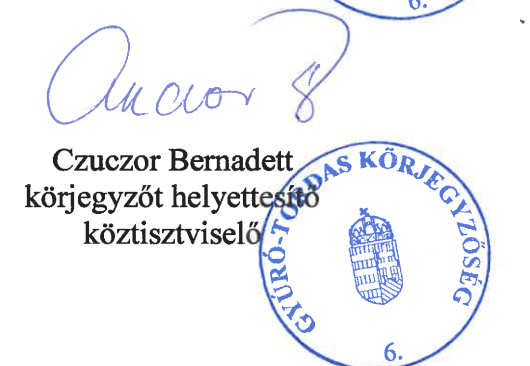 6.
Czuczor B
Czuczor Bernadett
körjegyzőt helyettesítő
köztisztviselő
GYÚRÓ-TORDAS KÖRJEGYZŐSÉG
6.